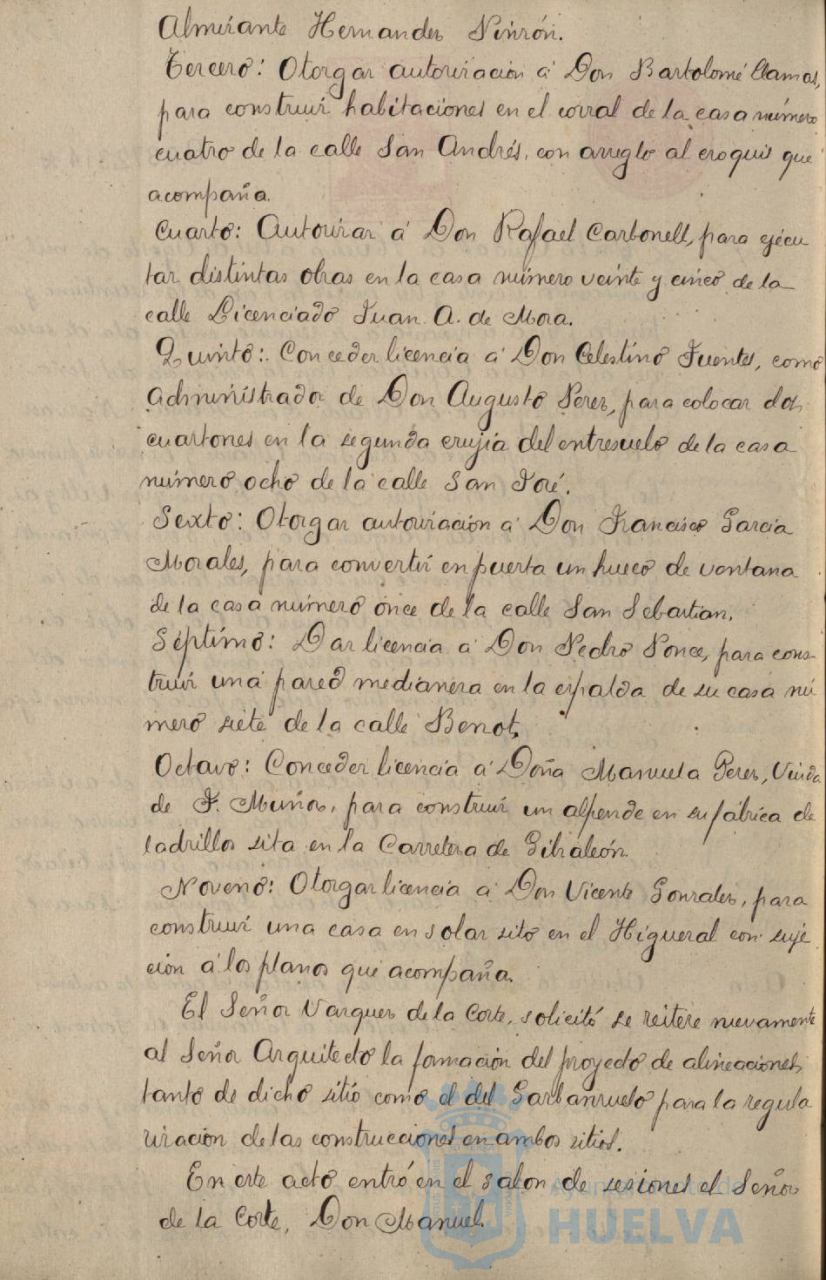 Almirante Hernandez Pinzón.
Tercero: Otorgar autorización á Don Bartolomé Llamas,
para construir habitaciones en el corral de la casa número
cuatro de la calle San Andrés, con arreglo al croquis que
acompaña.
Cuarto: Autorizar á Don Rafael Carbonell, para ejecu
tar distintas obras en la casa número veinte y cinco de la
calle Licenciado Juan A. de Mora.
Quinto: Conceder licencia á Don Celestino Fuentes, como
administrador de Don Augusto Perez, para colocar dos
cuartones en la segunda crujia del entresuelo de la casa
número ocho de la calle San José.
Sexto: Otorgar autorización á Don Francisco García
Morales, para convertir en puerta un hueco de ventana
de la casa número once de la calle San Sebastian.
Séptimo: Dar licencia á Don Pedro Ponce, para cons-
truir una pared medianera en la espalda de su casa nú
mero siete de la calle Benot.
Octavo: Conceder licencia á Doña Manuela Perez, Viuda
de F. Muñoz, para construir un alpende en su fábrica de
ladrillos sita en la Carretera de Gibraleón.
Noveno: Otorgar licencia á Don Vicente Gonzalez, para
construir una casa en solar sito en el Higueral con suje
ción á los planos que acompaña.
El Señor Vazquez de la Corte, solicitó se reitere nuevamente
al Señor Arquitecto la formación del proyecto de alineaciones
tanto de dicho sitio como el del Garbanzuelo para la regula
rización de las construcciones en ambos sitios.
En este acto entró en el salon de sesiones el Señor
de la Corte, Don Manuel.
Ayuntamiento de
HUELVA